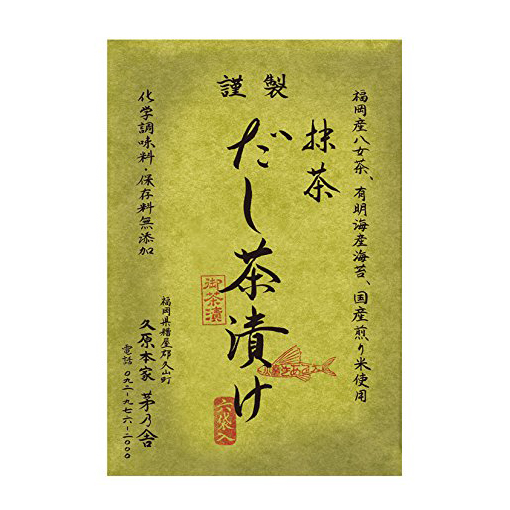 謹製
福岡産八女茶、有明海産海苔、国産煎り米使用
抹茶
だし茶漬け
御茶漬
六袋入
化学調味料・保存料無添加
福岡県糟屋郡久山町
久原本家 茅乃舎
電話 〇九二-九七六-二〇〇〇